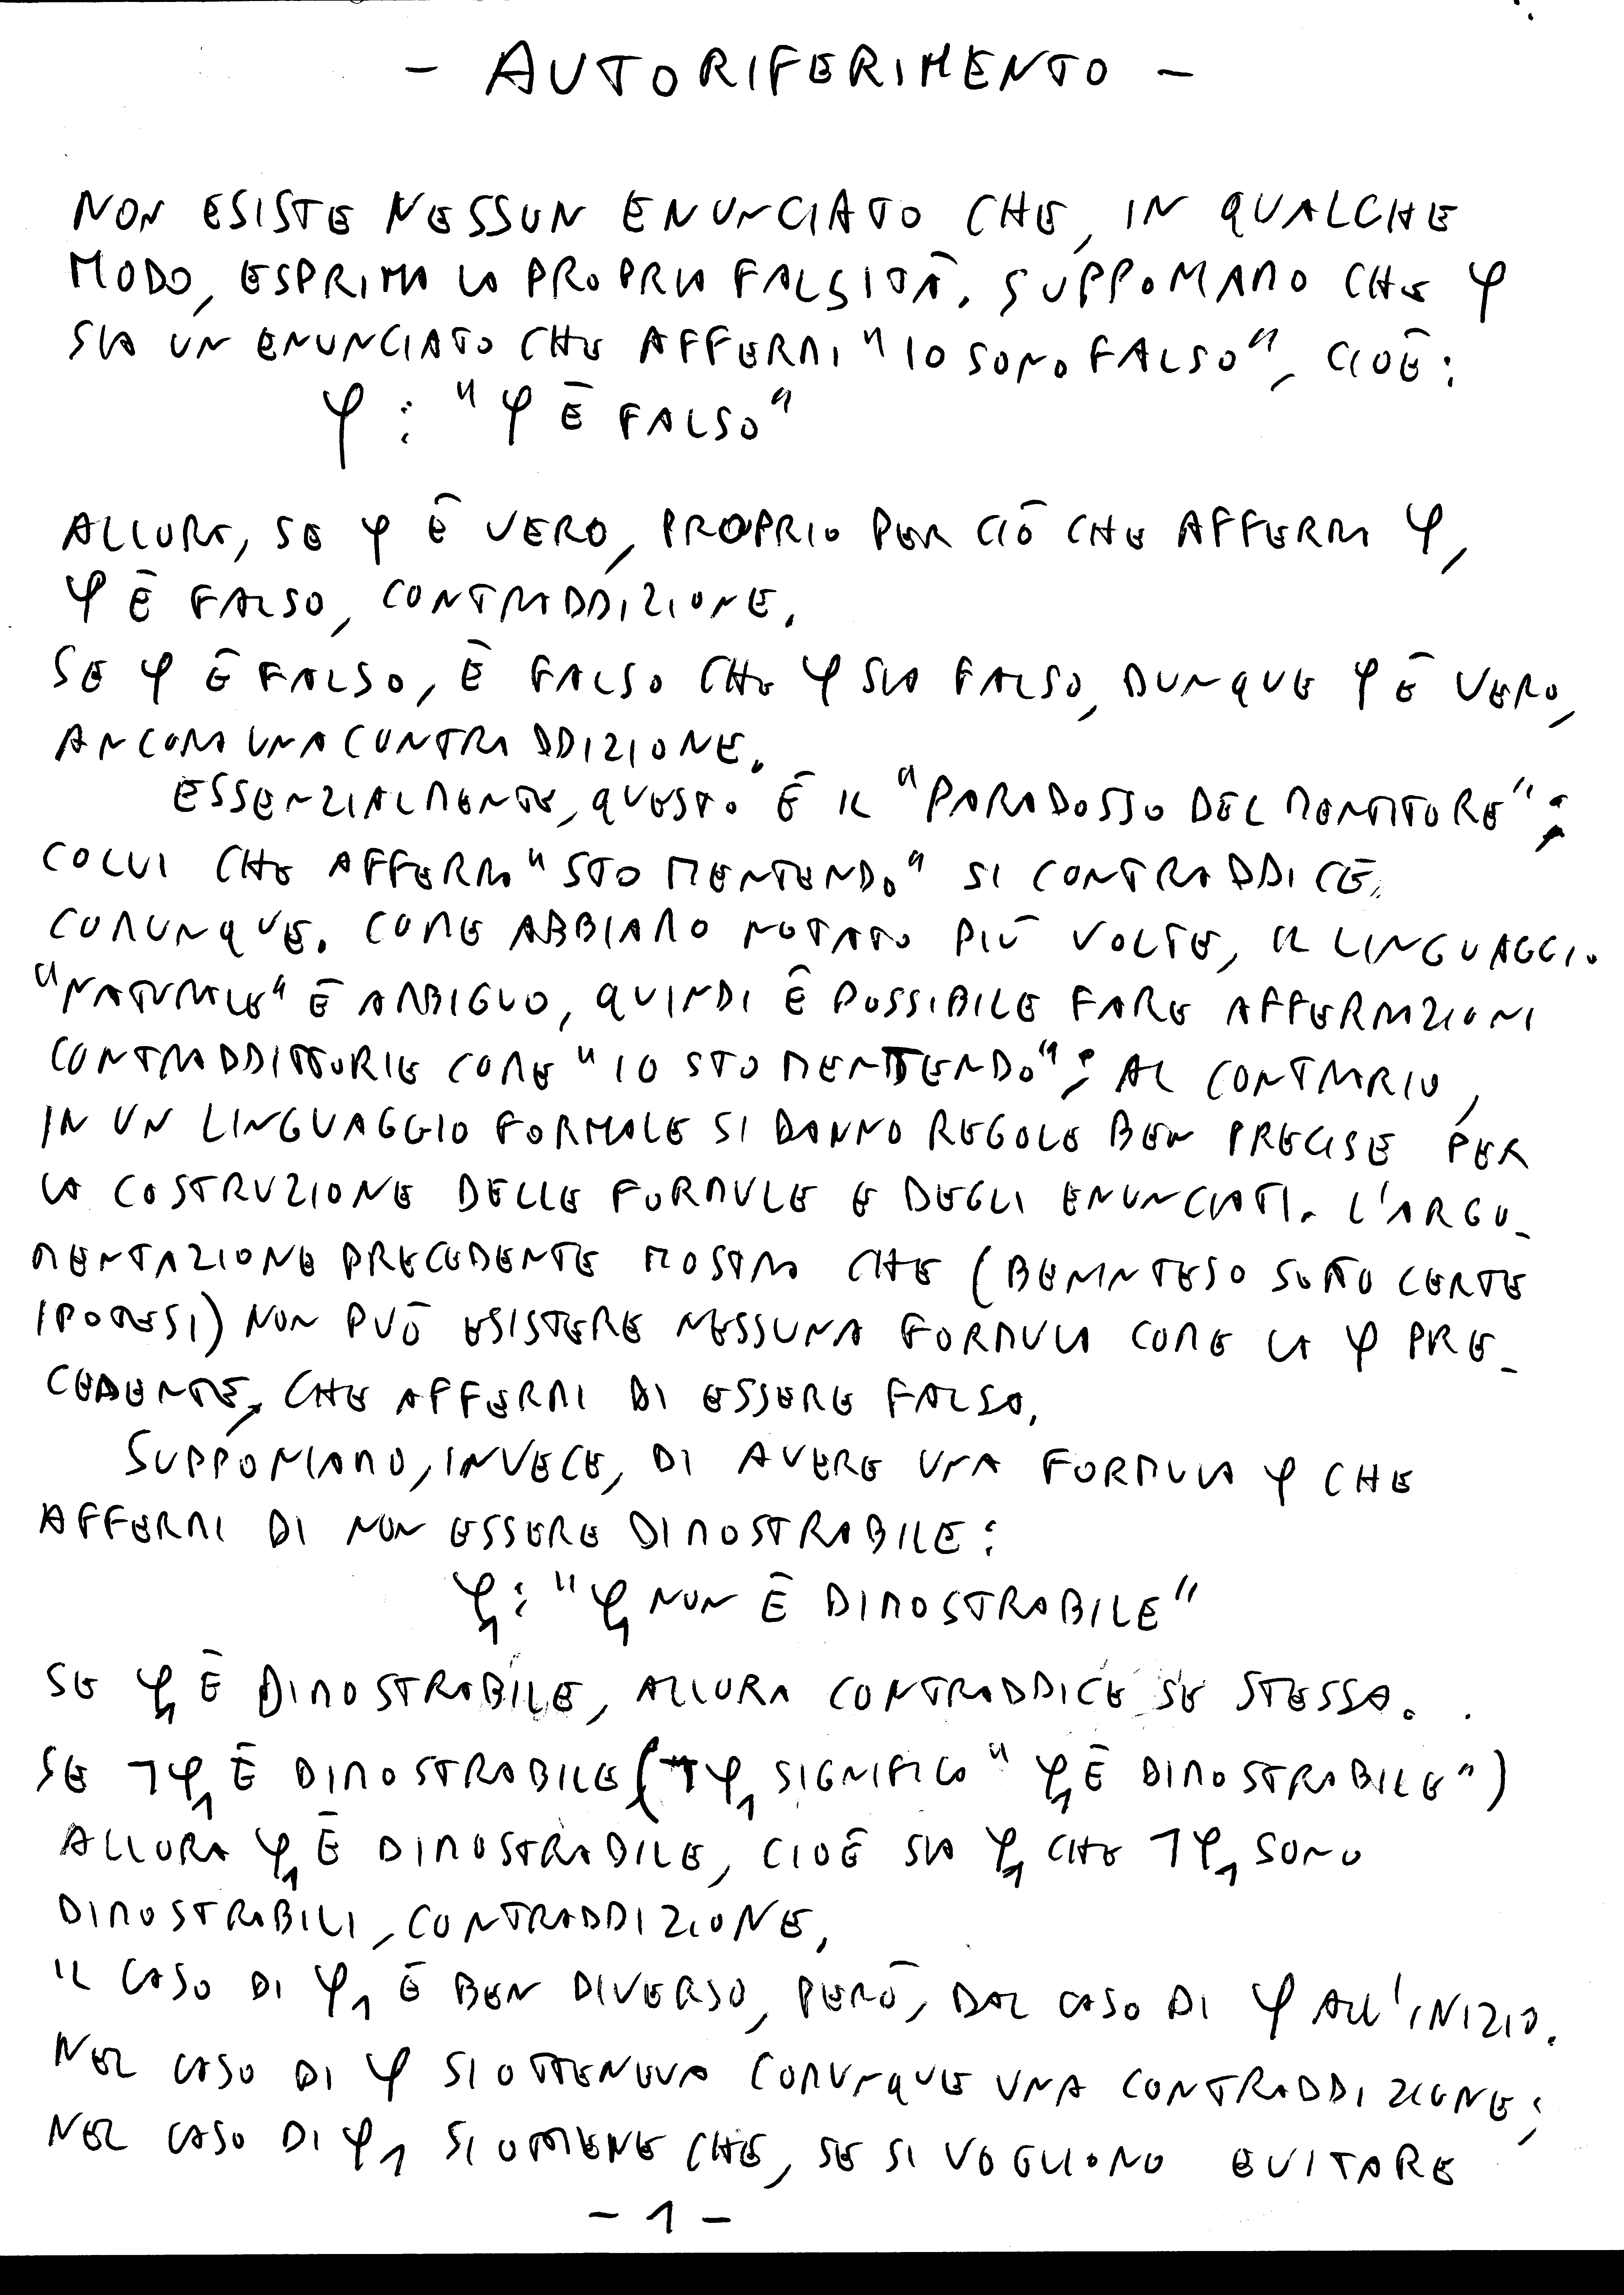 - AUTORIFERIMENTO -
NON ESISTE NESSUN ENUNCIATO CHE, IN QUALCHE
MODO, ESPRIMA LA PROPRIA FALSITÀ. SUPPONIAMO CHE φ
SIA UN ENUNCIATO CHE AFFERMI "IO SONO FALSO", CIOÈ:
φ : "φ È FALSO"
ALLORA, SE φ È VERO, PROPRIO PER CIÒ CHE AFFERMA φ,
φ È FALSO, CONTRADDIZIONE.
SE φ È FALSO, È FALSO CHE φ SIA FALSO, DUNQUE φ È VERO,
ANCORA UNA CONTRADDIZIONE.
ESSENZIALMENTE, QUESTO È IL "PARADOSSO DEL MENTITORE";
COLUI CHE AFFERMA "STO MENTENDO" SI CONTRADDICE
COMUNQUE. COME ABBIAMO NOTATO PIÙ VOLTE, IL LINGUAGGIO
"NATURALE" È AMBIGUO, QUINDI È POSSIBILE FARE AFFERMAZIONI
CONTRADDITTORIE COME "IO STO MENTENDO"; AL CONTRARIO,
IN UN LINGUAGGIO FORMALE SI DANNO REGOLE BEN PRECISE PER
LA COSTRUZIONE DELLE FORMULE E DEGLI ENUNCIATI. L'ARGO-
MENTAZIONE PRECEDENTE MOSTRA CHE (BENINTESO SOTTO CERTE
IPOTESI) NON PUÒ ESISTERE NESSUNA FORMULA COME LA φ PRE-
CEDENTE, CHE AFFERMI DI ESSERE FALSA.
SUPPONIAMO, INVECE, DI AVERE UNA FORMULA φ CHE
AFFERMI DI NON ESSERE DIMOSTRABILE:
φ₁: "φ₁ NON È DIMOSTRABILE"
SE φ₁ È DIMOSTRABILE, ALLORA CONTRADDICE SE STESSA.
SE ¬φ₁ È DIMOSTRABILE (¬φ₁ SIGNIFICA "φ₁ È DIMOSTRABILE")
ALLORA φ₁ È DIMOSTRABILE, CIOÈ SIA φ₁ CHE ¬φ₁ SONO
DIMOSTRABILI, CONTRADDIZIONE.
IL CASO DI φ₁ È BEN DIVERSO, PERÒ, DAL CASO DI φ ALL'INIZIO.
NEL CASO DI φ SI OTTENEVA COMUNQUE UNA CONTRADDIZIONE;
NEL CASO DI φ₁ SI OTTIENE CHE, SE SI VOGLIONO EVITARE
- 1 -